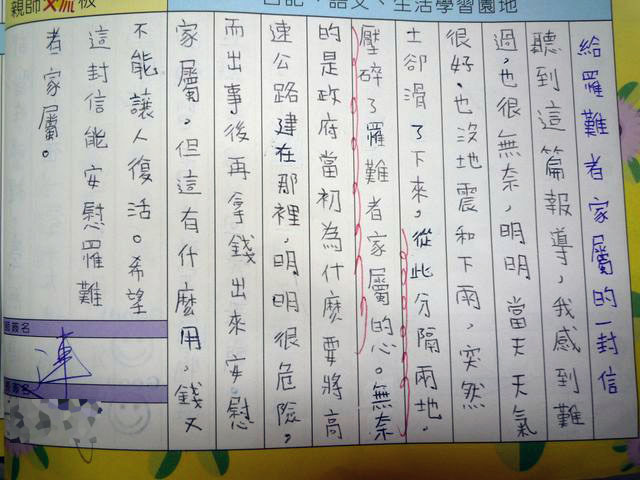 親師交流板
日記、語文、生活學習園地
給罹難者家屬的一封信
聽到這篇報導，我感到難
過，也很無奈，明明當天天氣
很好，也沒地震和下雨，突然
土卻滑了下來，從此分隔兩地，
壓碎了罹難者家屬的心。無奈
的是政府當初為什麼要將高
速公路建在那裡，明明很危險，
而出事後再拿錢出來安慰
家屬，但這有什麼用，錢又
不能讓人復活。希望
這封信能安慰罹難
者家屬。
簽名